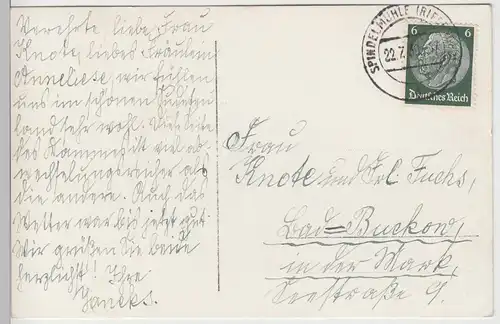 Verehrte, liebe Frau
Knote, liebes Fräulein
Anneliese, wir fühlen
uns im schönen Sudeten
land sehr wohl. Diese Seite
des Kammes ist viel ab-
wechselungsreicher als
die andere. Auch das
Wetter war bis jetzt gut.
Wir grüßen Sie beide
herzlichst! Ihre
SPINDELMÜHLE (RIES
22.7.
6 6
Deutsches Reich
Frau
Knote und Frl. Fuchs,
Bad=Buckow,
in der Mark,
Seestraße 9.